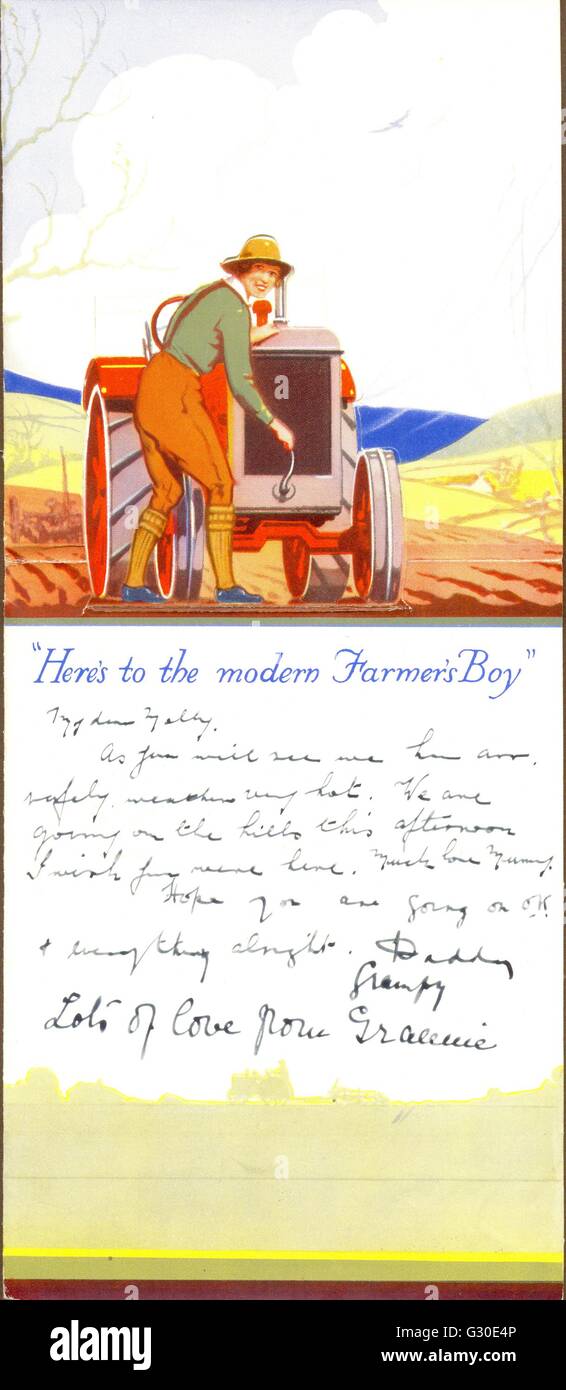 "Here's to the modern Farmer's Boy"
My dear
As you will see we have arr.
safely, weather very hot. We are
going on the hills this afternoon
I wish you were here. Much love Mummy.
Hope you are going on O.K.
& everything alright. Daddy
Grampy
Lots of love from Grannie
alamy
Image ID: G30E4P
www.alamy.com